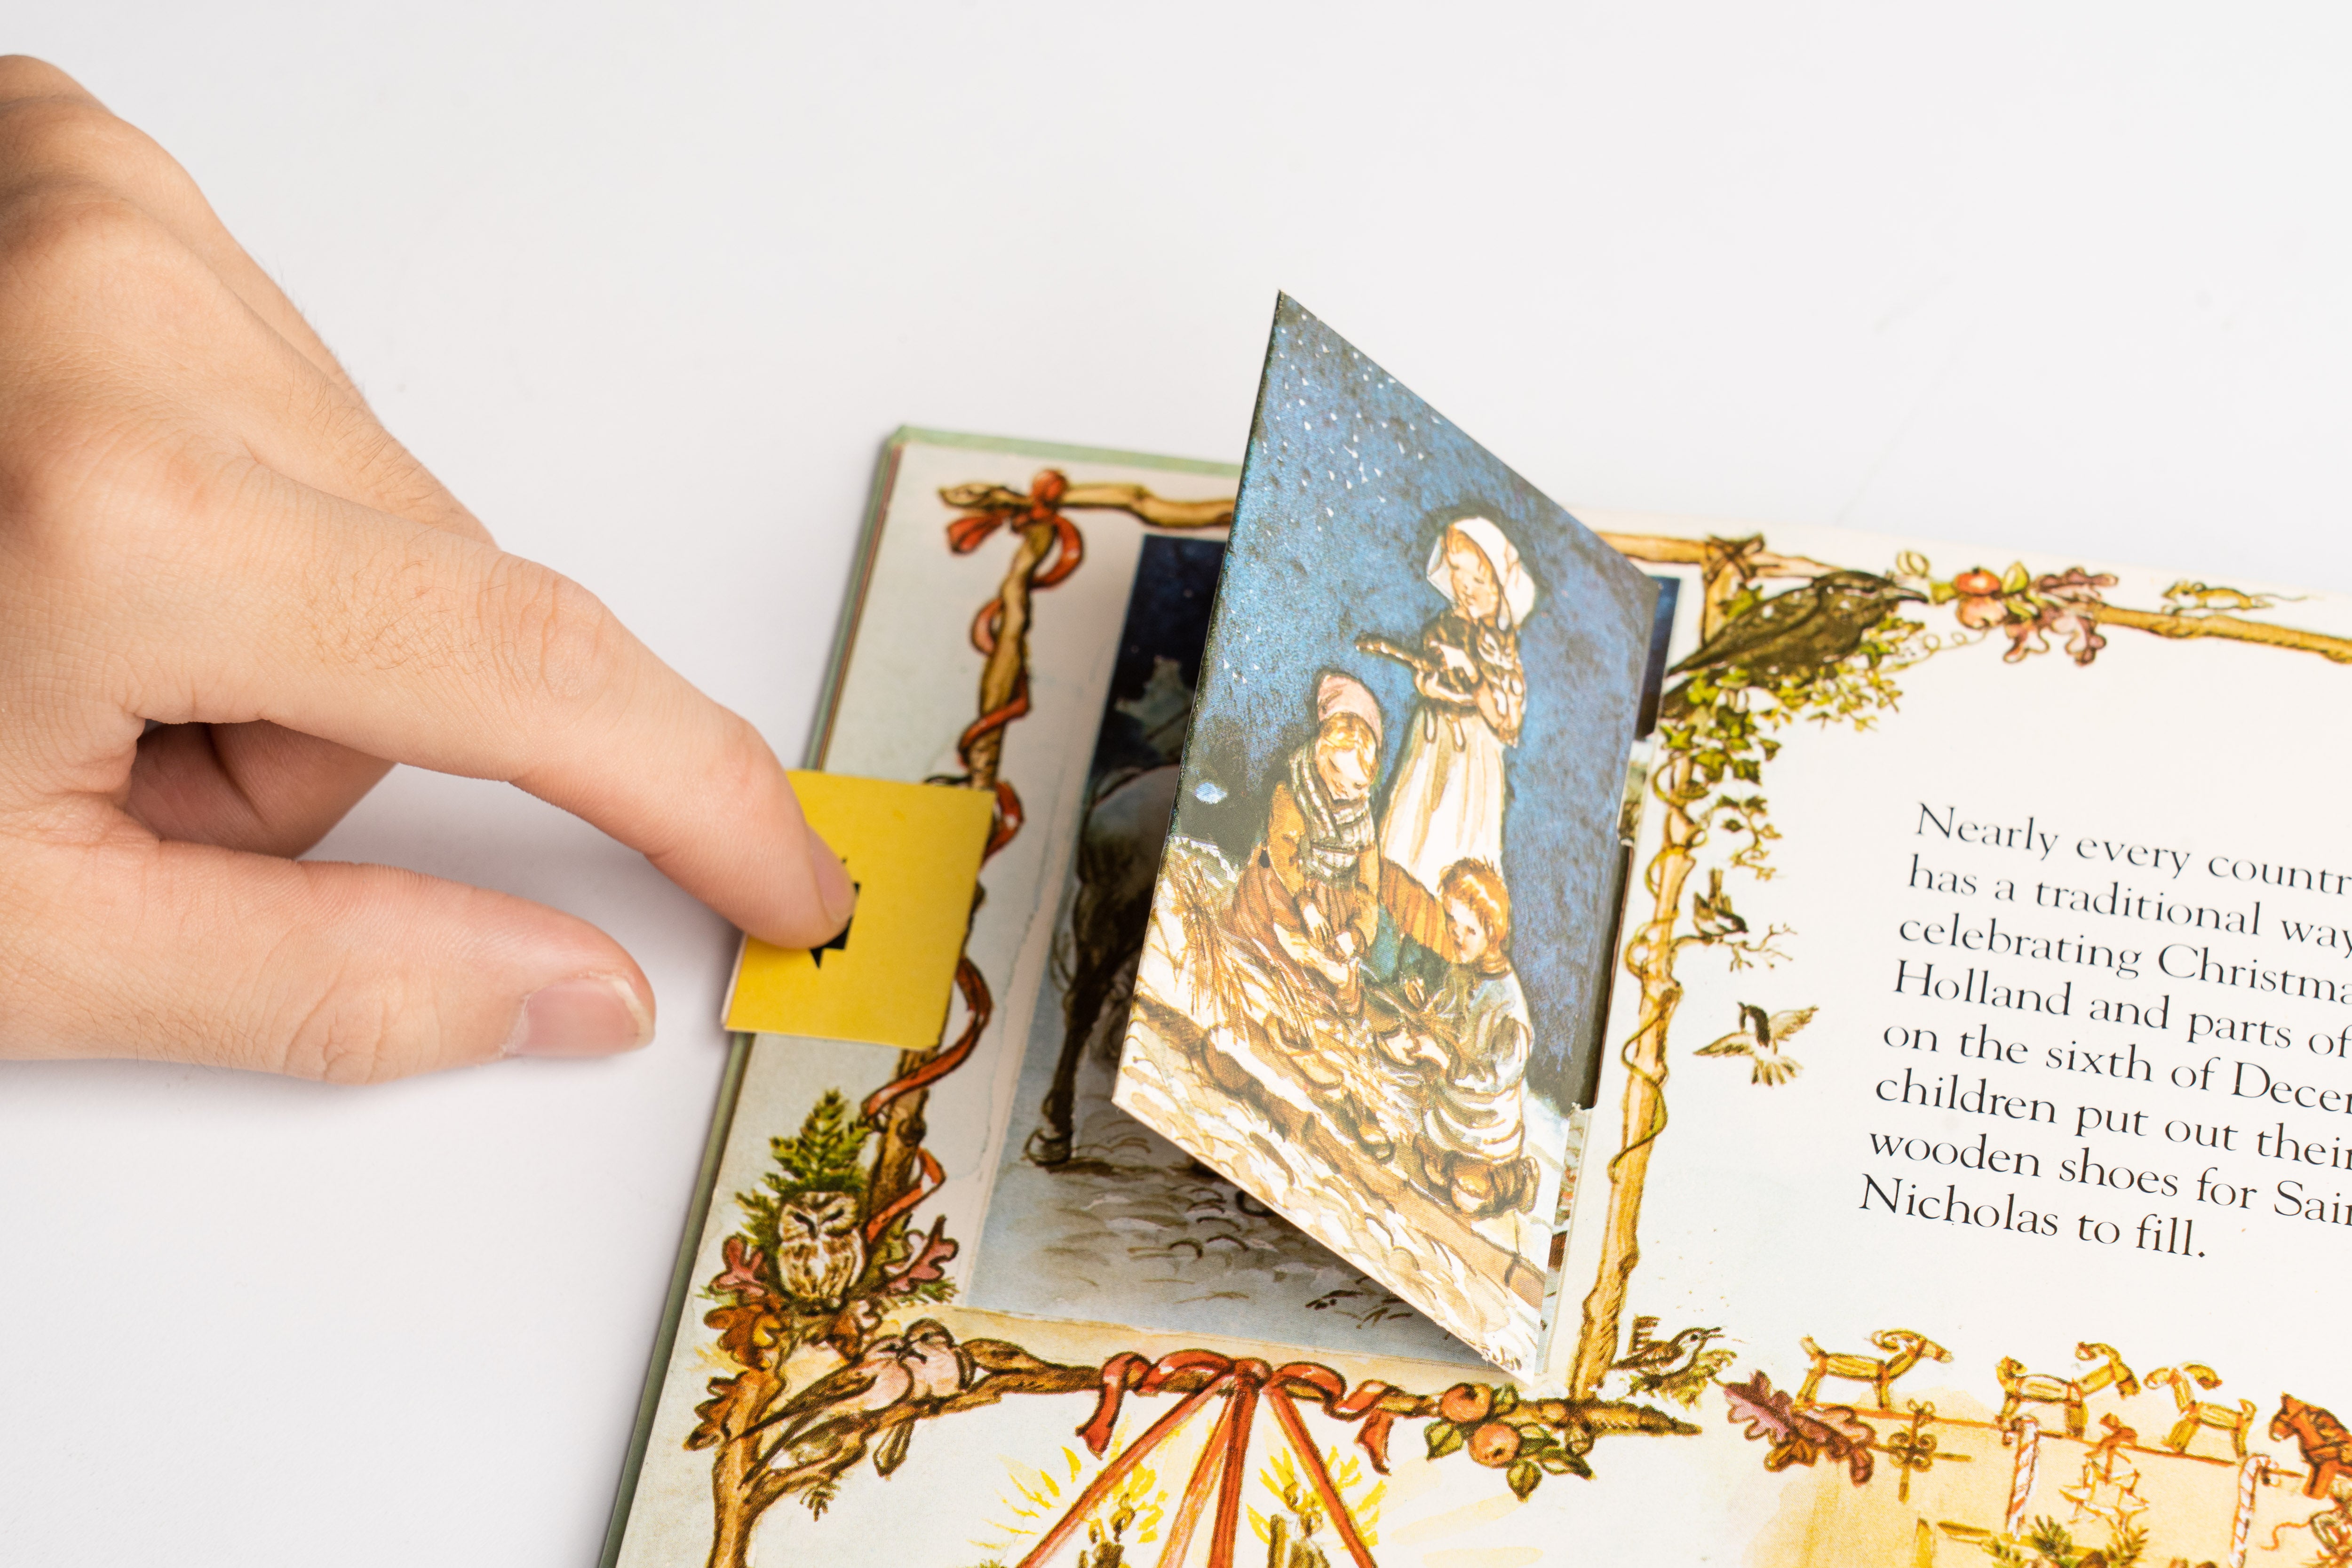 Nearly every countr
has a traditional way
celebrating Christma
Holland and parts of
on the sixth of Decem
children put out their
wooden shoes for Sain
Nicholas to fill.